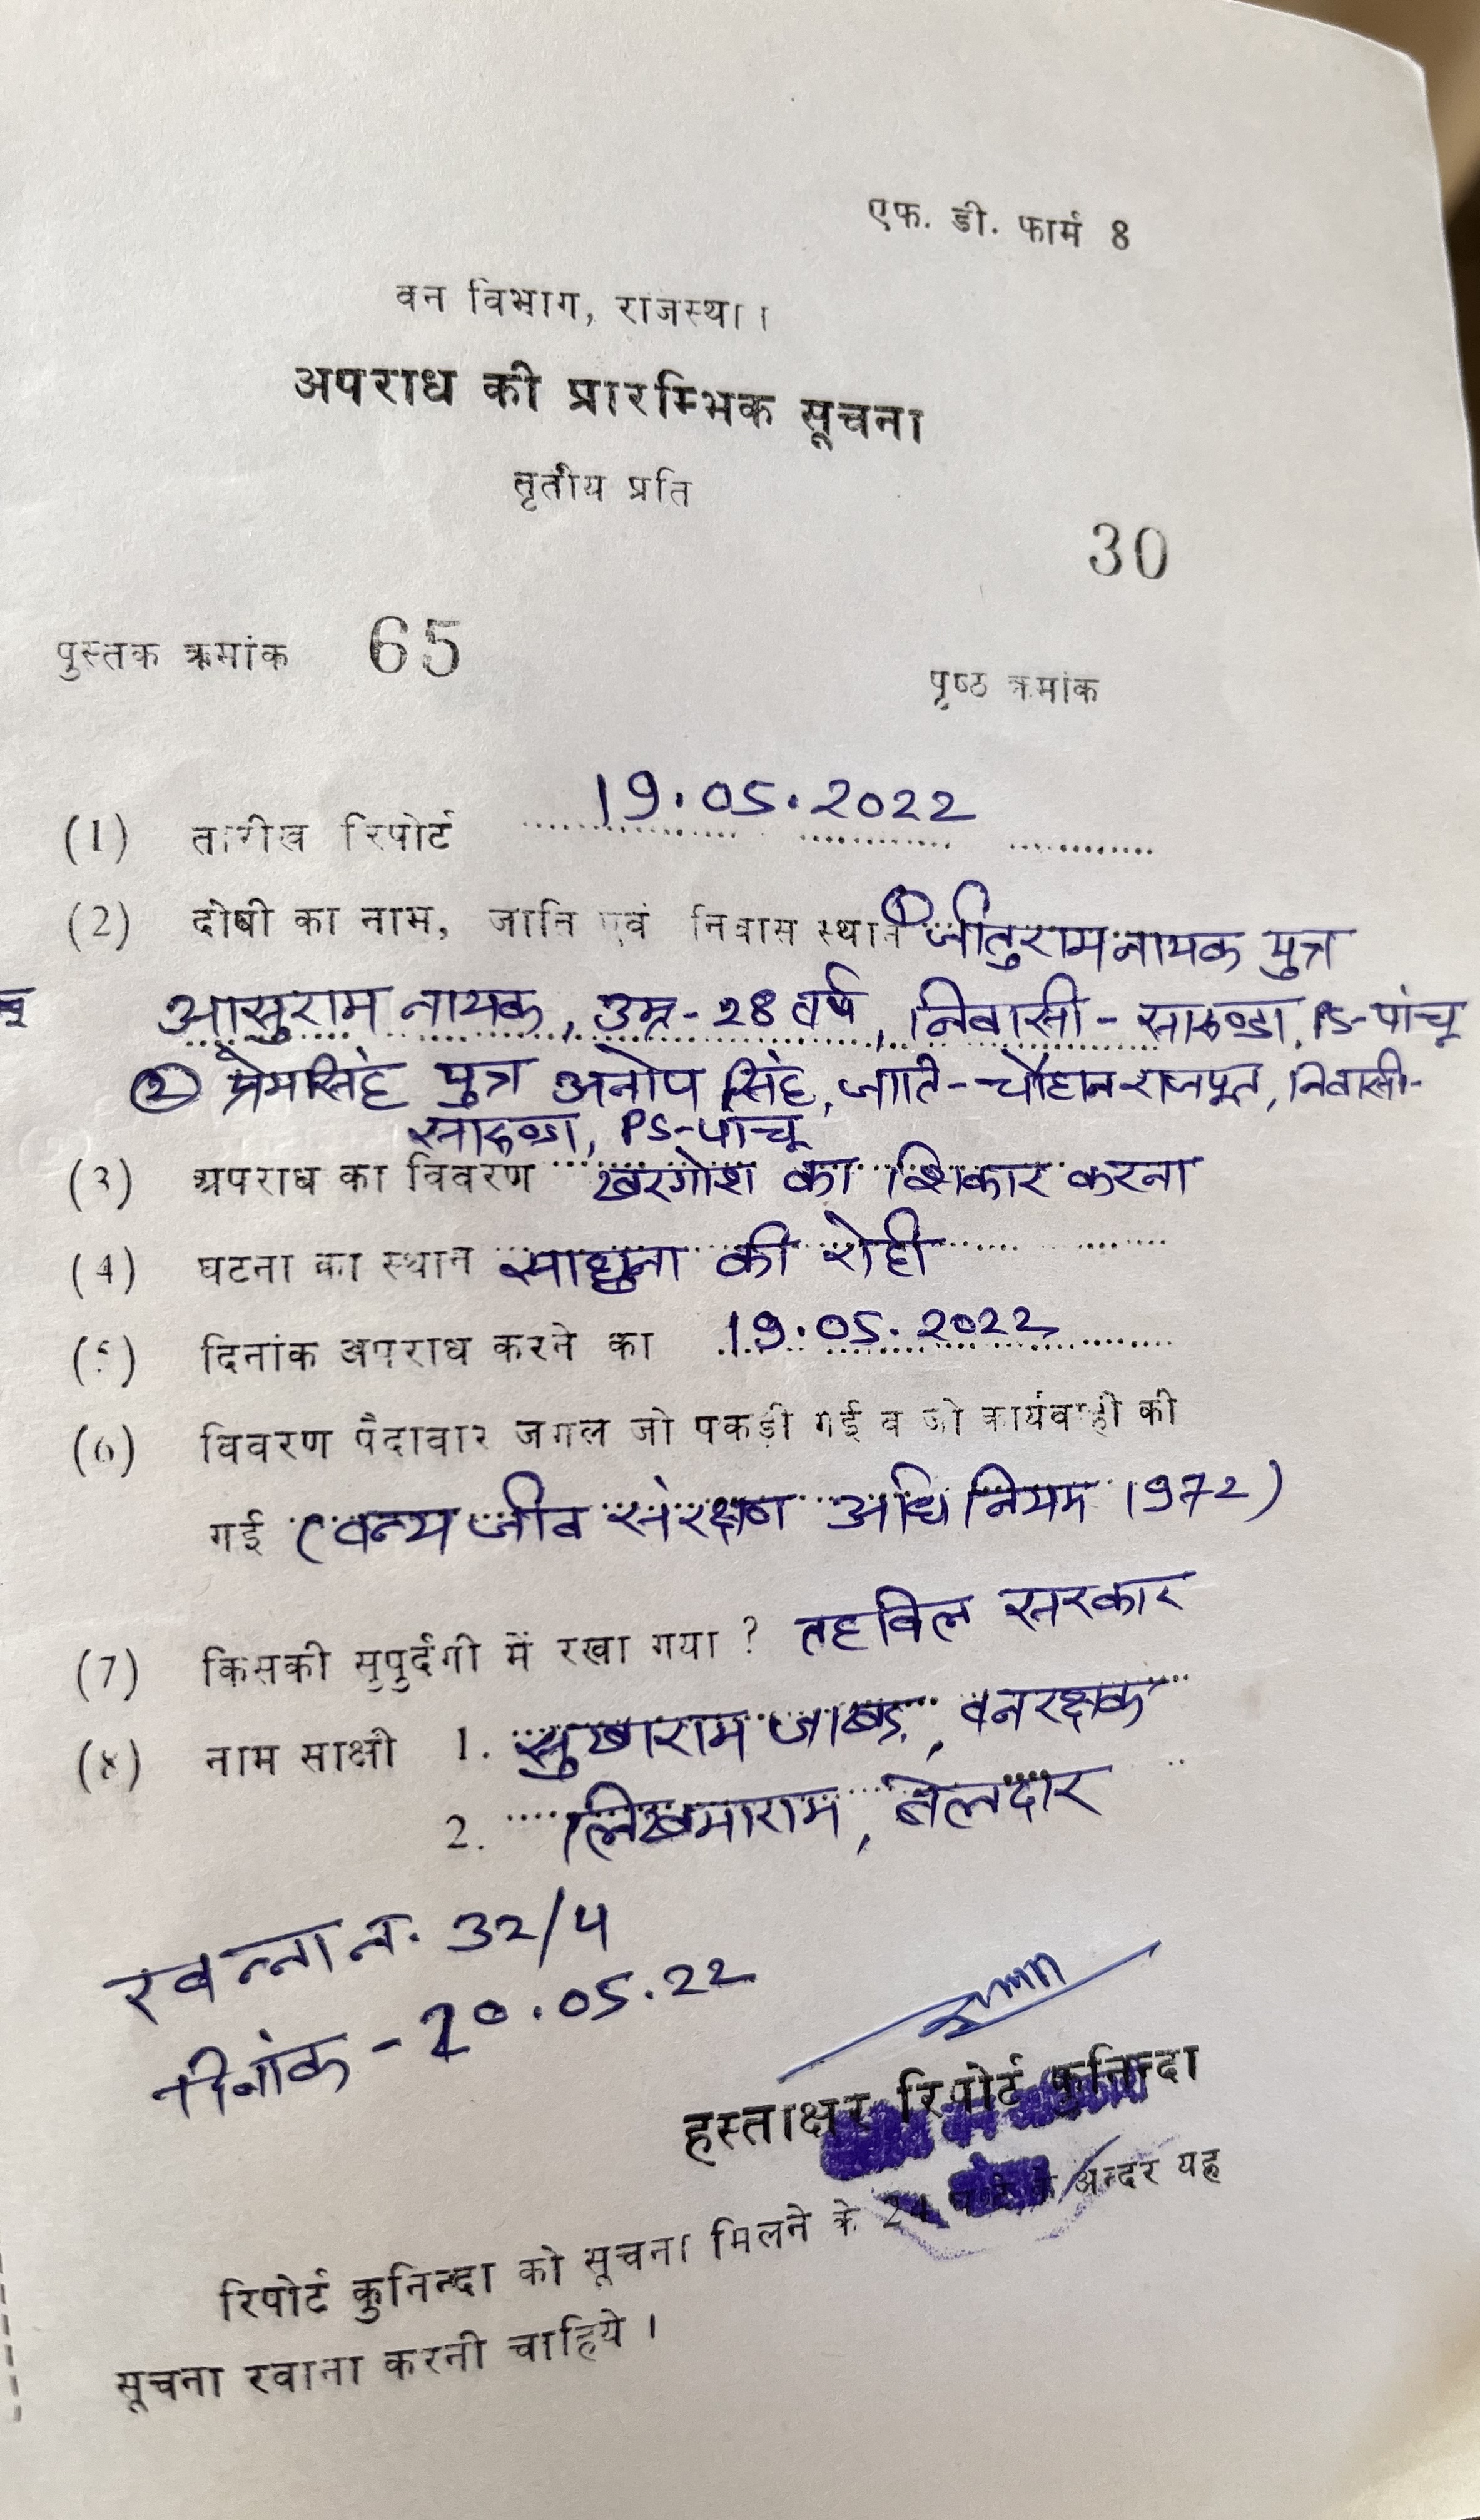 एफ. डी. फार्म 8
वन विभाग, राजस्था।
अपराध की प्रारम्भिक सूचना
तृतीय प्रति
30
पुस्तक क्रमांक 65
पृष्ठ क्रमांक
(1) तारीख रिपोर्ट 19.05.2022
(2) दोषी का नाम, जाति एवं निवास स्थान ① जीतुराम नायक पुत्र
आसुराम नायक, उम्र-28 वर्ष, निवासी - सारूण्डा, PS-पांचू
② प्रेमसिंह पुत्र अनोप सिंह, जाति-चौहान राजपूत, निवासी-
सारूण्डा, PS-पांचू
(3) अपराध का विवरण खरगोश का शिकार करना
(4) घटना का स्थान साधुना की रोही
(5) दिनांक अपराध करने का 19.05.2022
(6) विवरण पैदावार जगल जो पकड़ी गई व जो कार्यवाही की
गई (वन्य जीव संरक्षण अधिनियम 1972)
(7) किसकी सुपुर्दगी में रखा गया ? तहविल सरकार
(8) नाम साक्षी 1. सुखाराम, वनरक्षक
2. लिखमाराम, बेलदार
रवन्ना नं. 32/4
दिनांक - 20.05.22
हस्ताक्षर रिपोर्ट कुनिन्दा
रिपोर्ट कुनिन्दा को सूचना मिलने के 24 घन्टे के अन्दर यह
सूचना रवाना करनी चाहिये ।